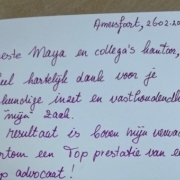 Amersfoort, 26.02.20
este Maya en collega's kantoor,
eel hartelijk dank voor je
kundige inzet en vasthoudendhe
"mijn" zaak.
resultaat is boven mijn verwa
rtom een Top prestatie van een
p advocaat!